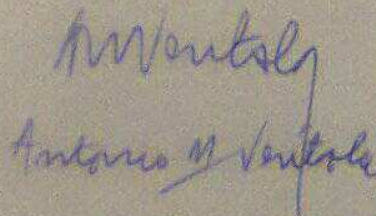 AMVentola
Antonio M Ventola